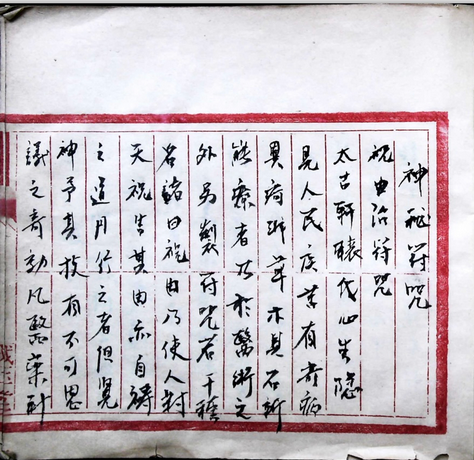 神秘符咒
祝由治符咒
太古軒轅代心生隱
見人民疾苦有奇症
異 草木具石所
能療者乃於醫術之
外另製符咒若干種
名諸曰祝由乃使人對
天祝告其由亦自禱
之道用行之者但覺
神乎其技有不可思
議之奇効凡醫藥